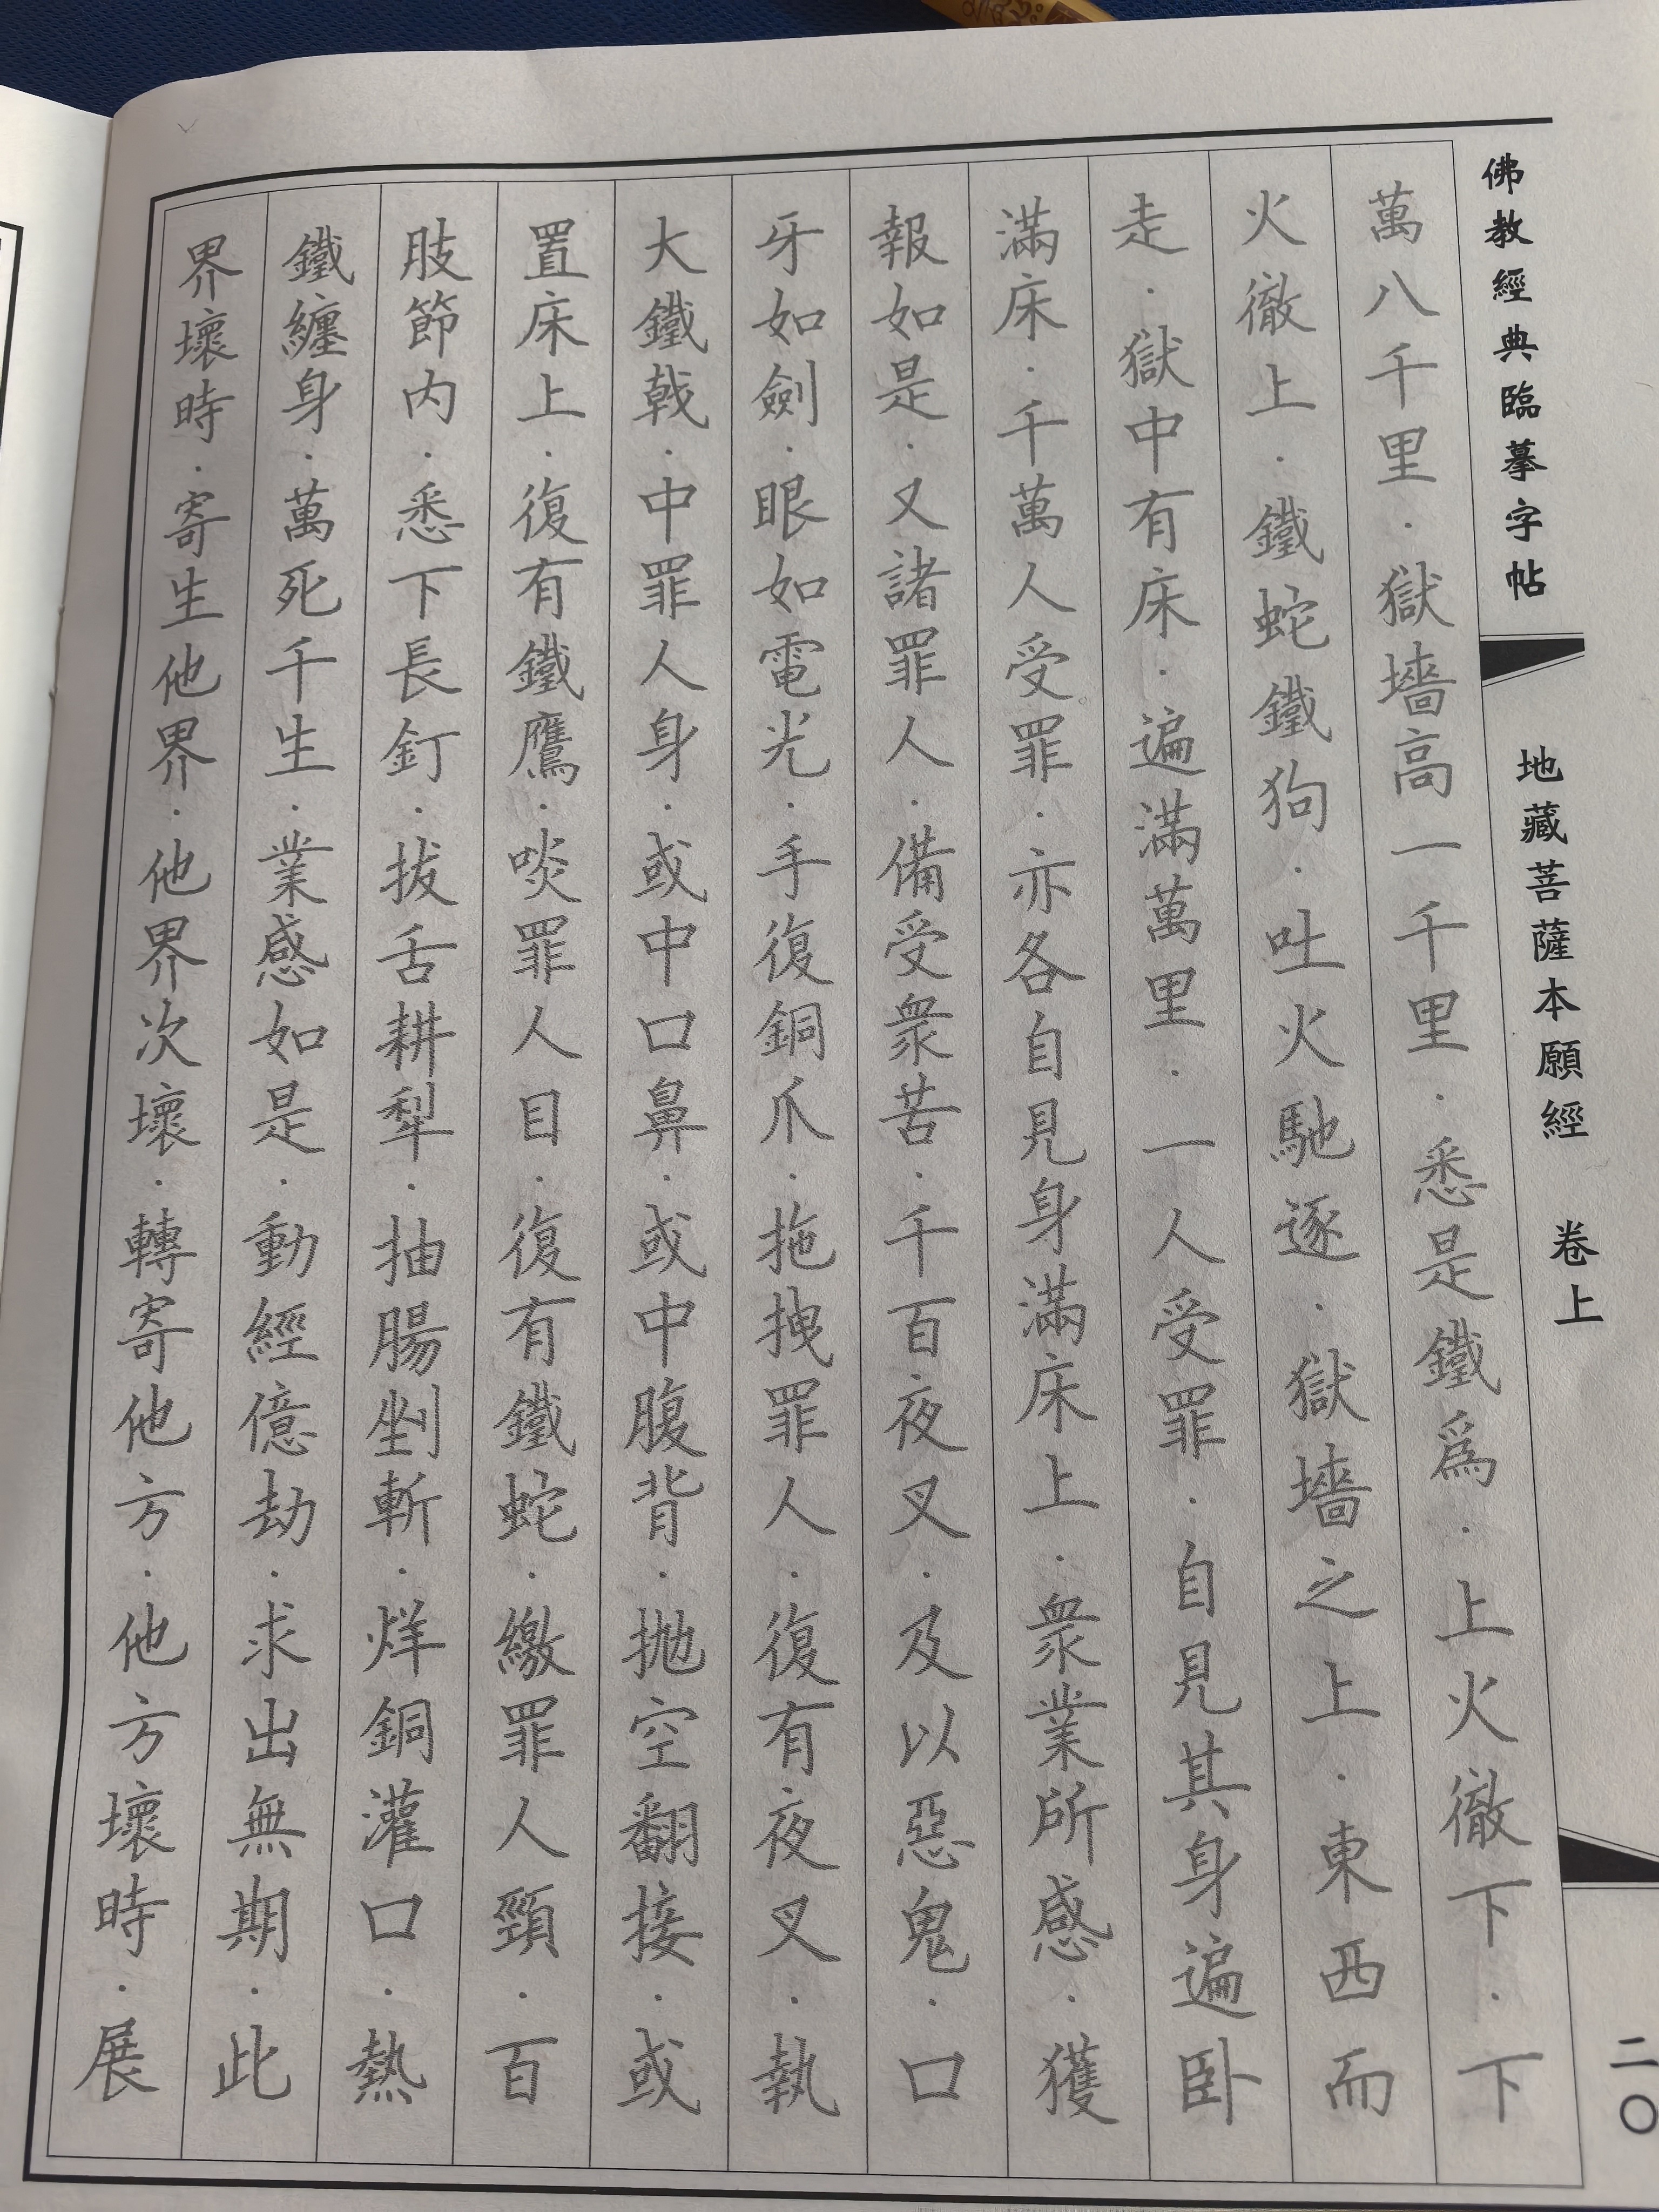 佛教經典臨摹字帖
地藏菩薩本願經 卷上
二〇
萬八千里．獄墻高一千里．悉是鐵爲．上火徹下．下
火徹上．鐵蛇鐵狗．吐火馳逐．獄墻之上．東西而
走．獄中有床．遍滿萬里．一人受罪．自見其身遍卧
滿床．千萬人受罪．亦各自見身滿床上．衆業所感．獲
報如是．又諸罪人．備受衆苦．千百夜叉．及以惡鬼．口
牙如劍．眼如電光．手復銅爪．拖拽罪人．復有夜叉．執
大鐵戟．中罪人身．或中口鼻．或中腹背．拋空翻接．或
置床上．復有鐵鷹．啖罪人目．復有鐵蛇．繳罪人頸．百
肢節内．悉下長釘．拔舌耕犁．抽腸剉斬．烊銅灌口．熱
鐵纏身．萬死千生．業感如是．動經億劫．求出無期．此
界壞時．寄生他界．他界次壞．轉寄他方．他方壞時．展